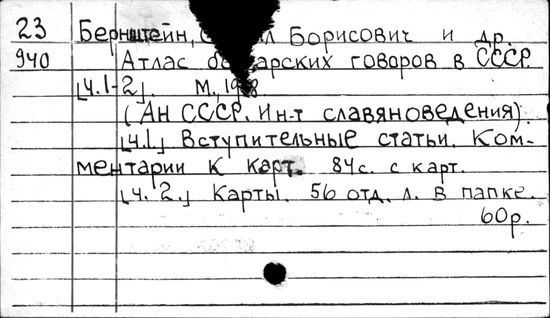 23 Бернштейн, Борисович и др.
940 Атлас говоров в СССР.
[ч.1-2]. М.,
(АН СССР. Ин-т славяноведения).
[ч.1] Вступительные статьи. Ком-
ментарии к карт. 84с. с карт.
[ч. 2.] Карты. 56 отд. л. в папке.
60р.